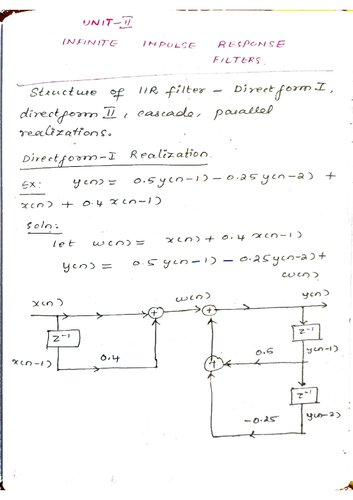 UNIT-II
INFINITE IMPULSE RESPONSE
FILTERS
Structure of IIR filter - Direct form I,
direct form II, cascade, parallel
realizations.
Direct form-I Realization
Ex: y(n) = 0.5 y(n-1) - 0.25 y(n-2) +
x(n) + 0.4 x(n-1)
Soln:
let w(n) = x(n) + 0.4 x(n-1)
y(n) = 0.5 y(n-1) - 0.25 y(n-2) +
w(n)
x(n) + w(n) + y(n)
z⁻¹ z⁻¹
x(n-1) 0.4 + 0.5 y(n-1)
z⁻¹
-0.25 y(n-2)